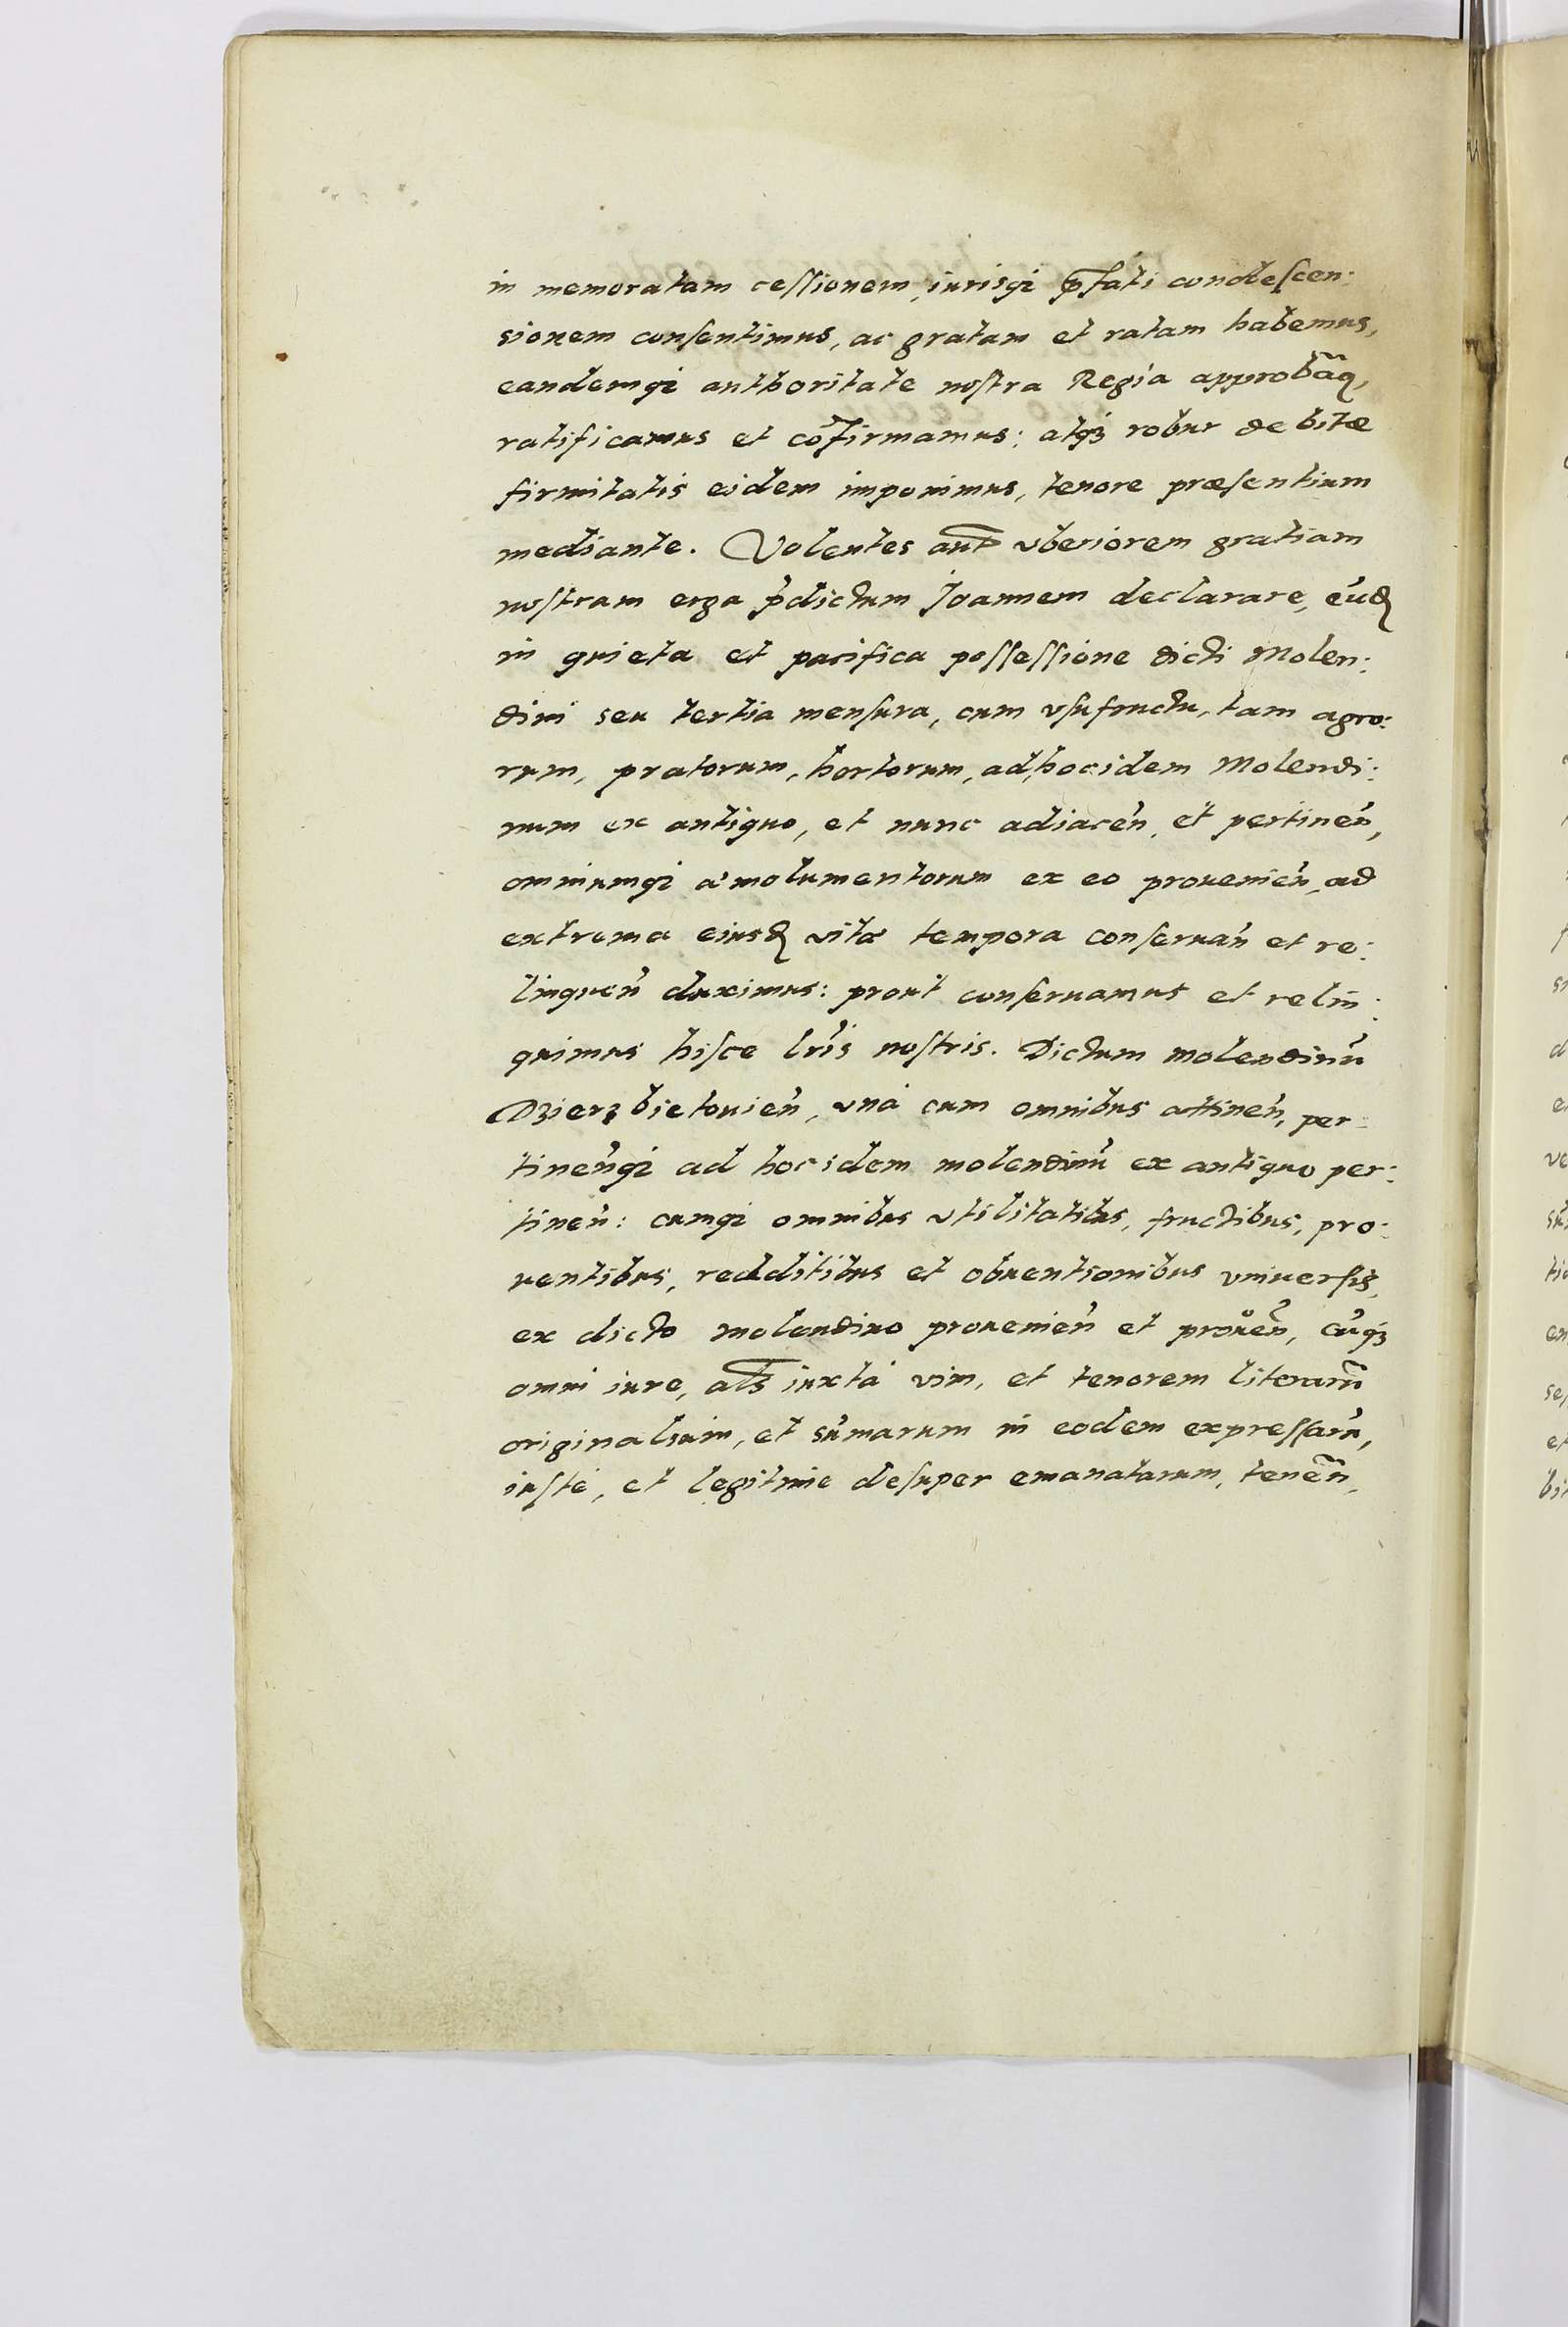 in memoratam ceſſionem, iurisq; p̄fati condeſcen:
sionem conſentimus, ac gratam et ratam habemus,
eandemq; authoritate noſtra Regia approbam̃,
ratificamus et cõfirmamus: atq; robur debitæ
firmitatis eidem imponimus, tenore præſentium
mediante. Volentes aut̃ vberiorem gratiam
noſtram erga p̃dictum Joannem declarare, eũd
in quieta et pacifica poſſeſſione dicti Molen:
dini seu tertia menſura, cum vſufructu, tam agro:
rum, pratorum, hortorum, ad hocidem Molendi:
num ex antiquo, et nunc adiaceñ, et pertineñ,
omniumq; æmolumentorum ex eo prouenieñ, ad
extrema eiusd vitæ tempora conſeruañ et re:
linqueñ duximus: prout conſeruamus et relin:
quimus hiſce lr̃is noſtris. Dictum molendinũ
Dzierzbietouieñ, vnà cum omnibus attineñ, per:
tineñq; ad hocidem molendinũ ex antiquo per:
tineñ: cumq; omnibus vtilitatibus, fructibus, pro:
uentibus, redditibus et obuentionibus vniuerſis,
ex dicto molendino prouenieñ et proueñ, cũq;
omni iure, als iuxtà vim, et tenorem literarũ
originalium, et sũmarum in eodem expreſſarũ,
iuſtè, et legitimè deſuper emanatarum, teneñ,